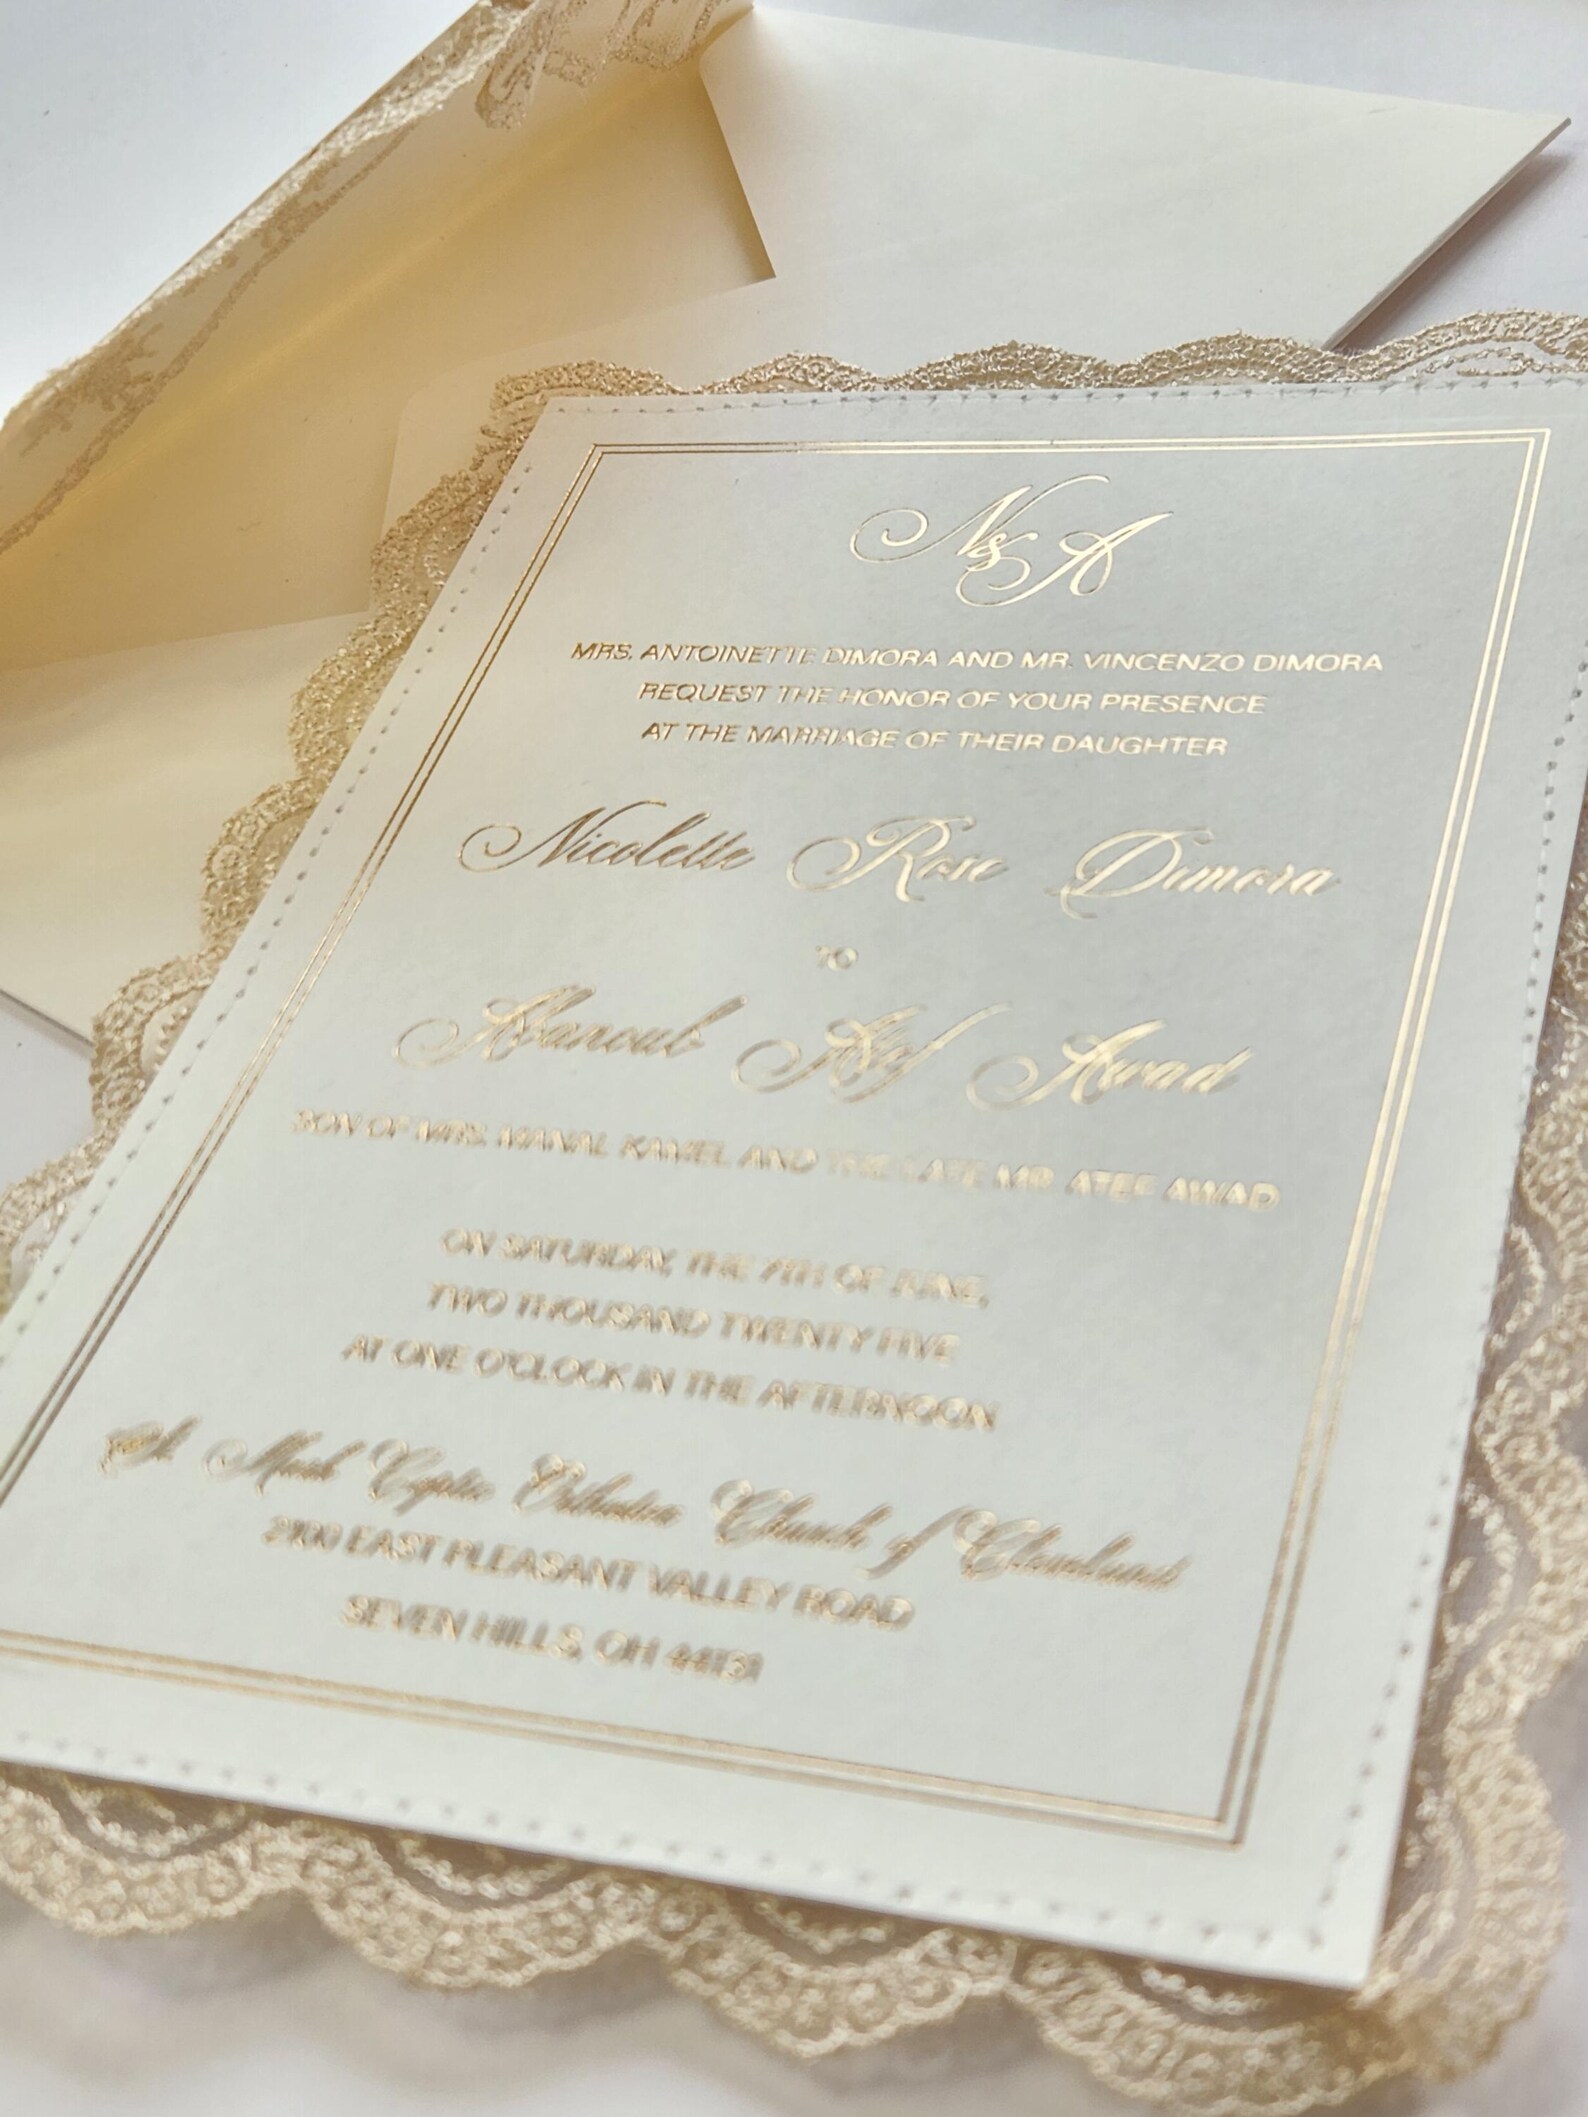 N&A
MRS. ANTOINETTE DIMORA AND MR. VINCENZO DIMORA
REQUEST THE HONOR OF YOUR PRESENCE
AT THE MARRIAGE OF THEIR DAUGHTER
Nicolette Rose Dimora
TO
Abanoub Atef Awad
SON OF MRS. MANAL KAMEL AND THE LATE MR. ATEF AWAD
ON SATURDAY, THE 7TH OF JUNE,
TWO THOUSAND TWENTY FIVE
AT ONE O'CLOCK IN THE AFTERNOON
St. Mark Coptic Orthodox Church of Cleveland
2100 EAST PLEASANT VALLEY ROAD
SEVEN HILLS, OH 44131